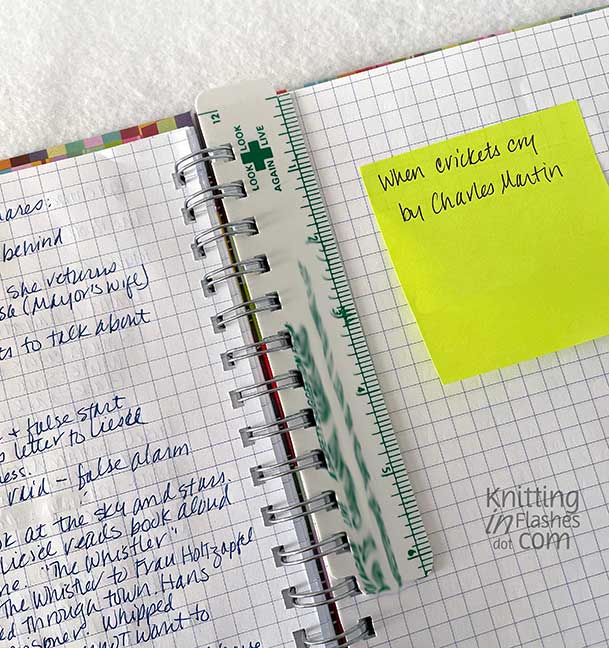 ares:
behind
she returns
sa (Mayor's Wife)
ts to talk about
+ false start
letter to Liesel
ness.
raid - false alarm
ok at the sky and stars
Liesel reads book aloud
ne. "The Whistler"
The Whistler to Frau Holtzapfel
ed through town. Hans
isoner. Whipped
not want to
12
LOOK LOOK
AGAIN LIVE
When crickets cry
by Charles Martin
Knitting
in Flashes
dot com